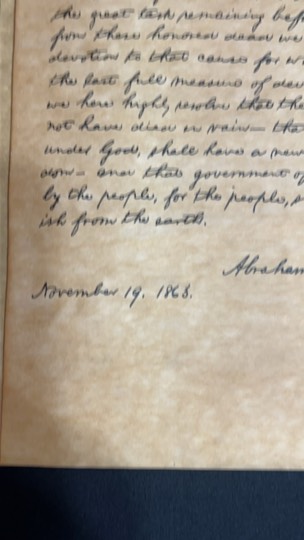 the great task remaining bef
from these honored dead we
devotion to that cause for w
the last full measure of dev
we here highly resolve that the
not have died in vain— tha
under God, shall have a new
dom— and that government of
by the people, for the people, s
ish from the earth.
Abraham
November 19, 1863.